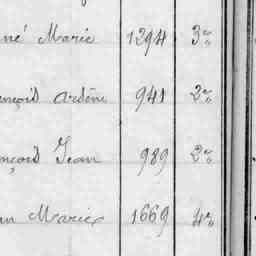 né Marie 1294 3e
ançois Ardène 941 2e
ançois Jean 989 2e
an Marie 1669 4e